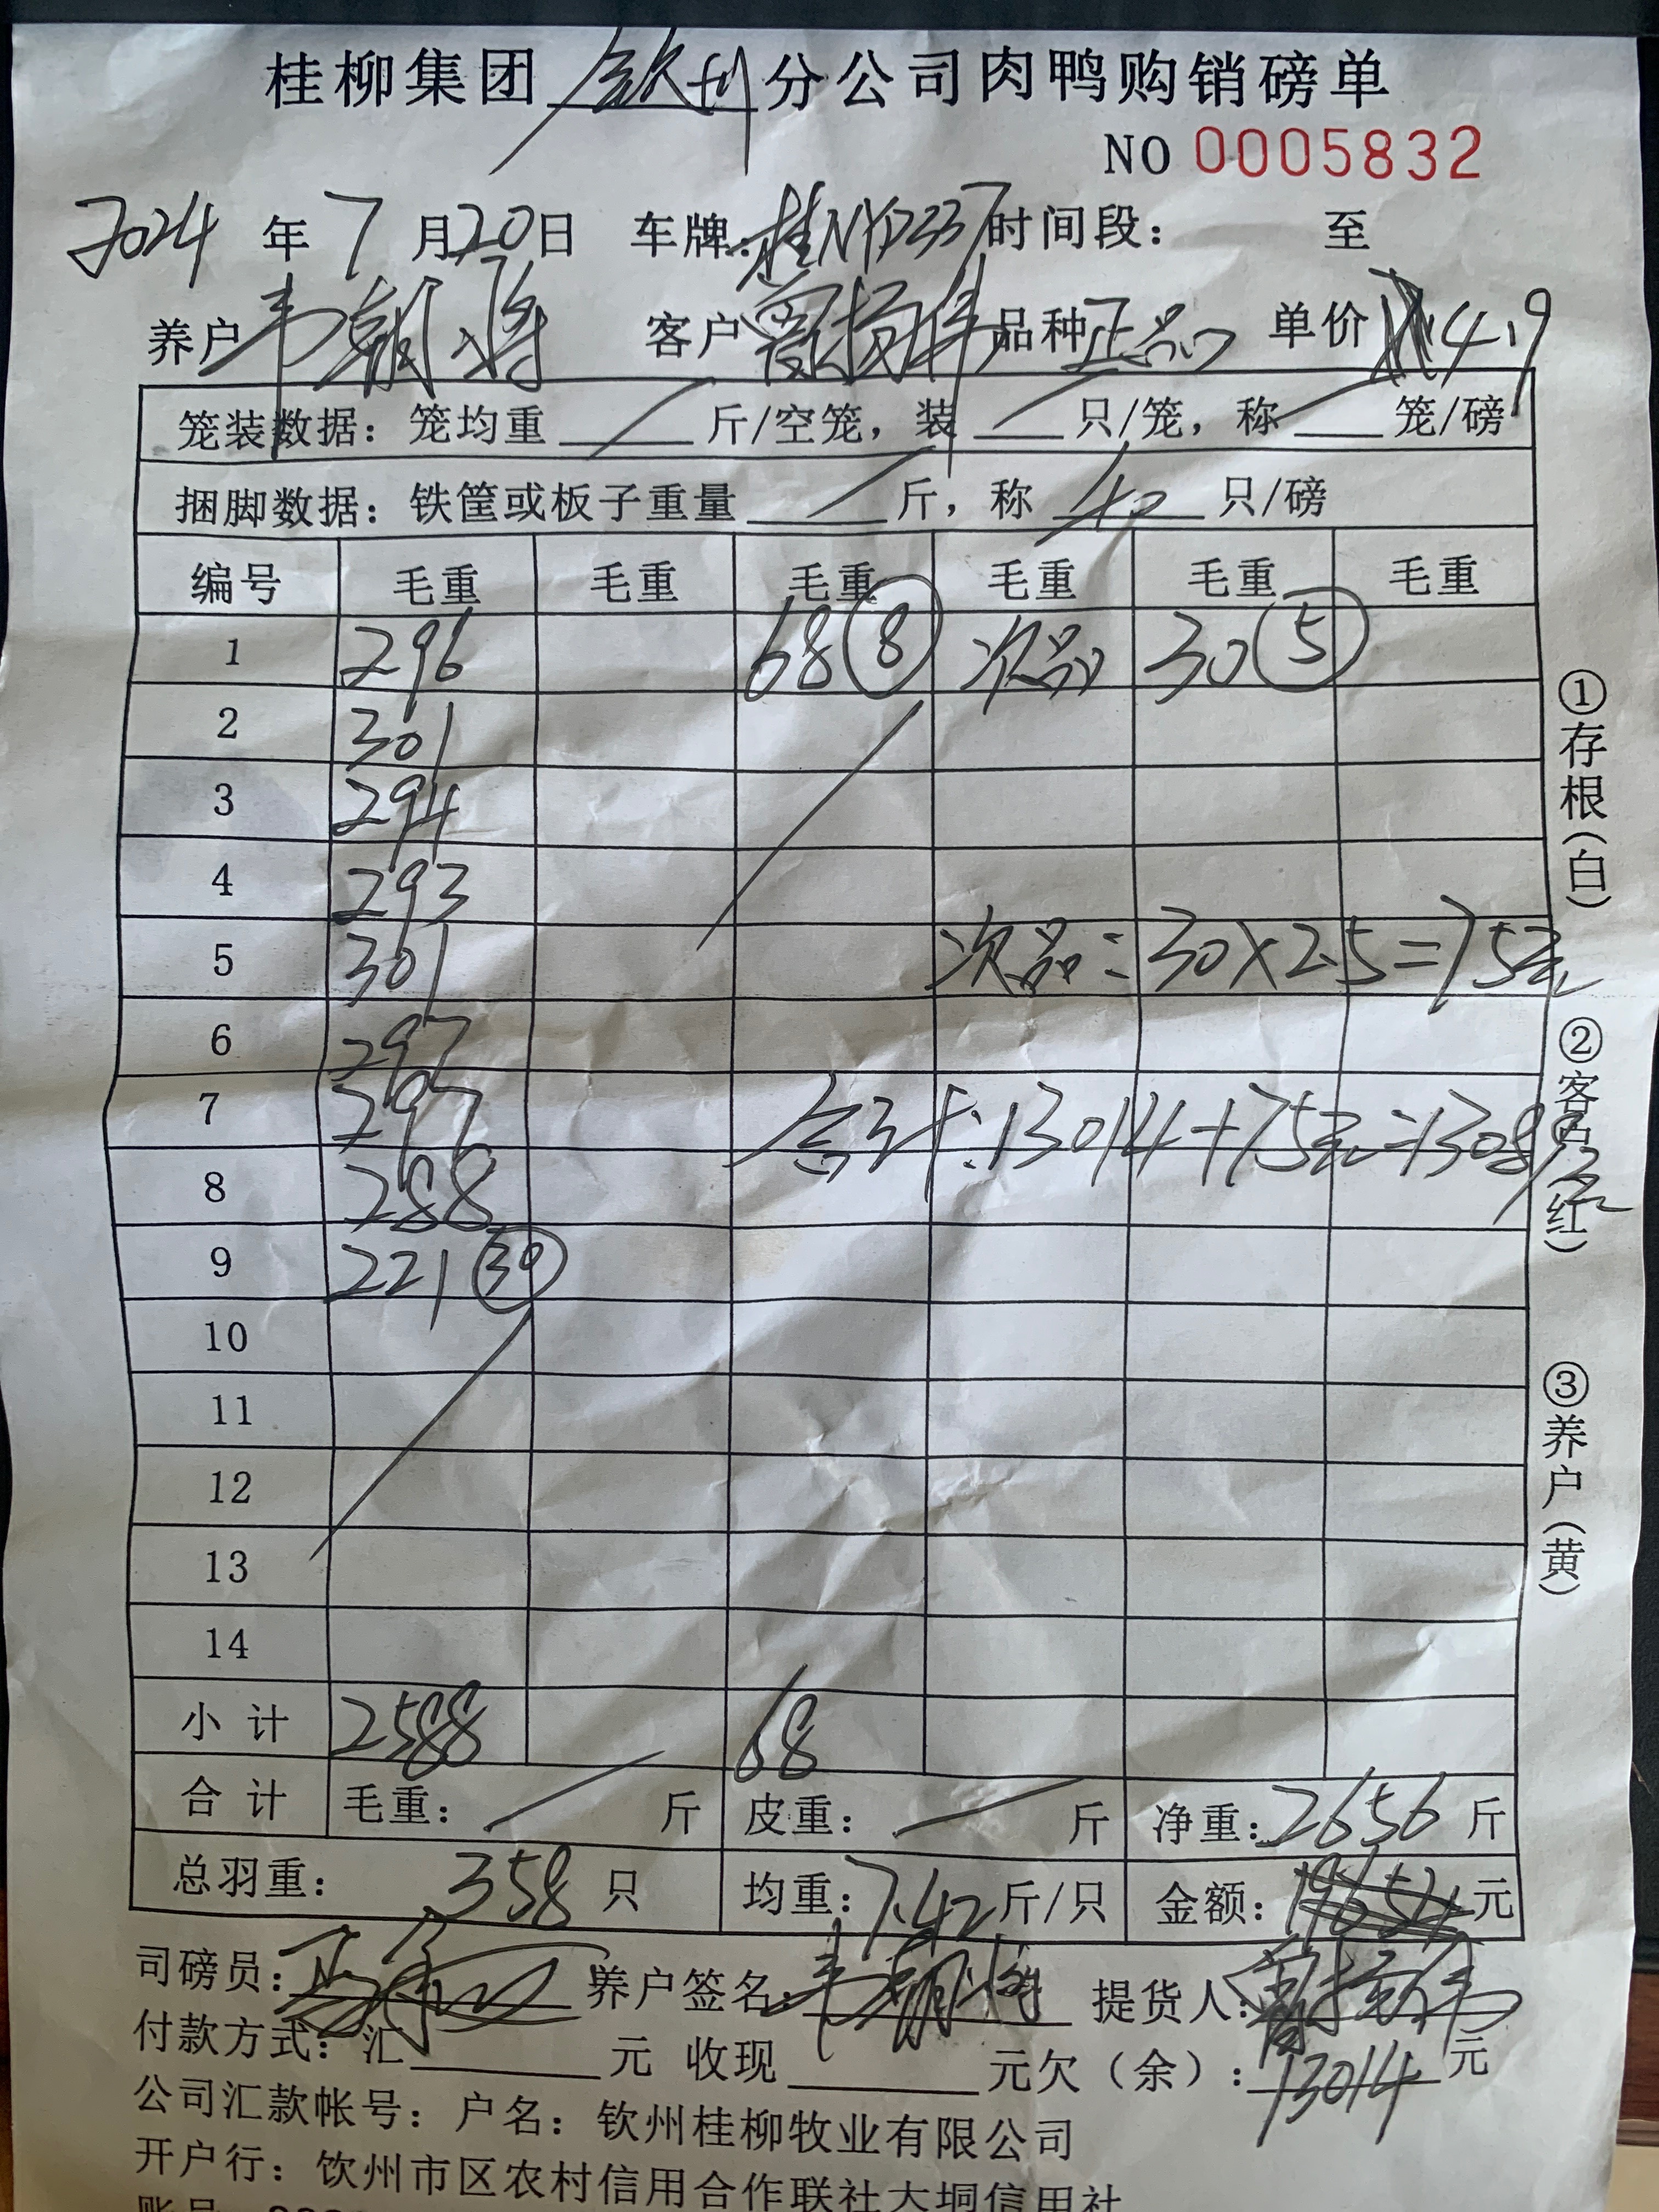 桂柳集团 钦州 分公司肉鸭购销磅单
NO 0005832
2024 年 7 月 20 日 车牌:桂NYD337 时间段: 至
养户 韦朝将 客户 品种 正品 单价 4.9
笼装数据:笼均重 / 斤/空笼,装 / 只/笼,称 / 笼/磅
捆脚数据:铁筐或板子重量 / 斤,称 40 只/磅
编号 毛重 毛重 毛重 毛重 毛重 毛重
1 296 68 ⑧ 次品 30 ⑤
2 301
3 294
4 293
5 301 次品:30×2.5=75元
6 297
7 297 合计:13014+75元=13089元
8 288
9 221 ㉚
10
11
12
13
14
小计 2588 68
合计 毛重: / 斤 皮重: / 斤 净重:2656 斤
总羽重: 358 只 均重:7.42 斤/只 金额: 元
司磅员: 养户签名:韦朝将 提货人:
付款方式:汇 元 收现 元欠(余):13014 元
公司汇款帐号:户名:钦州桂柳牧业有限公司
开户行:饮州市区农村信用合作联社大垌信用社
①存根(白)
②客户(红)
③养户(黄)